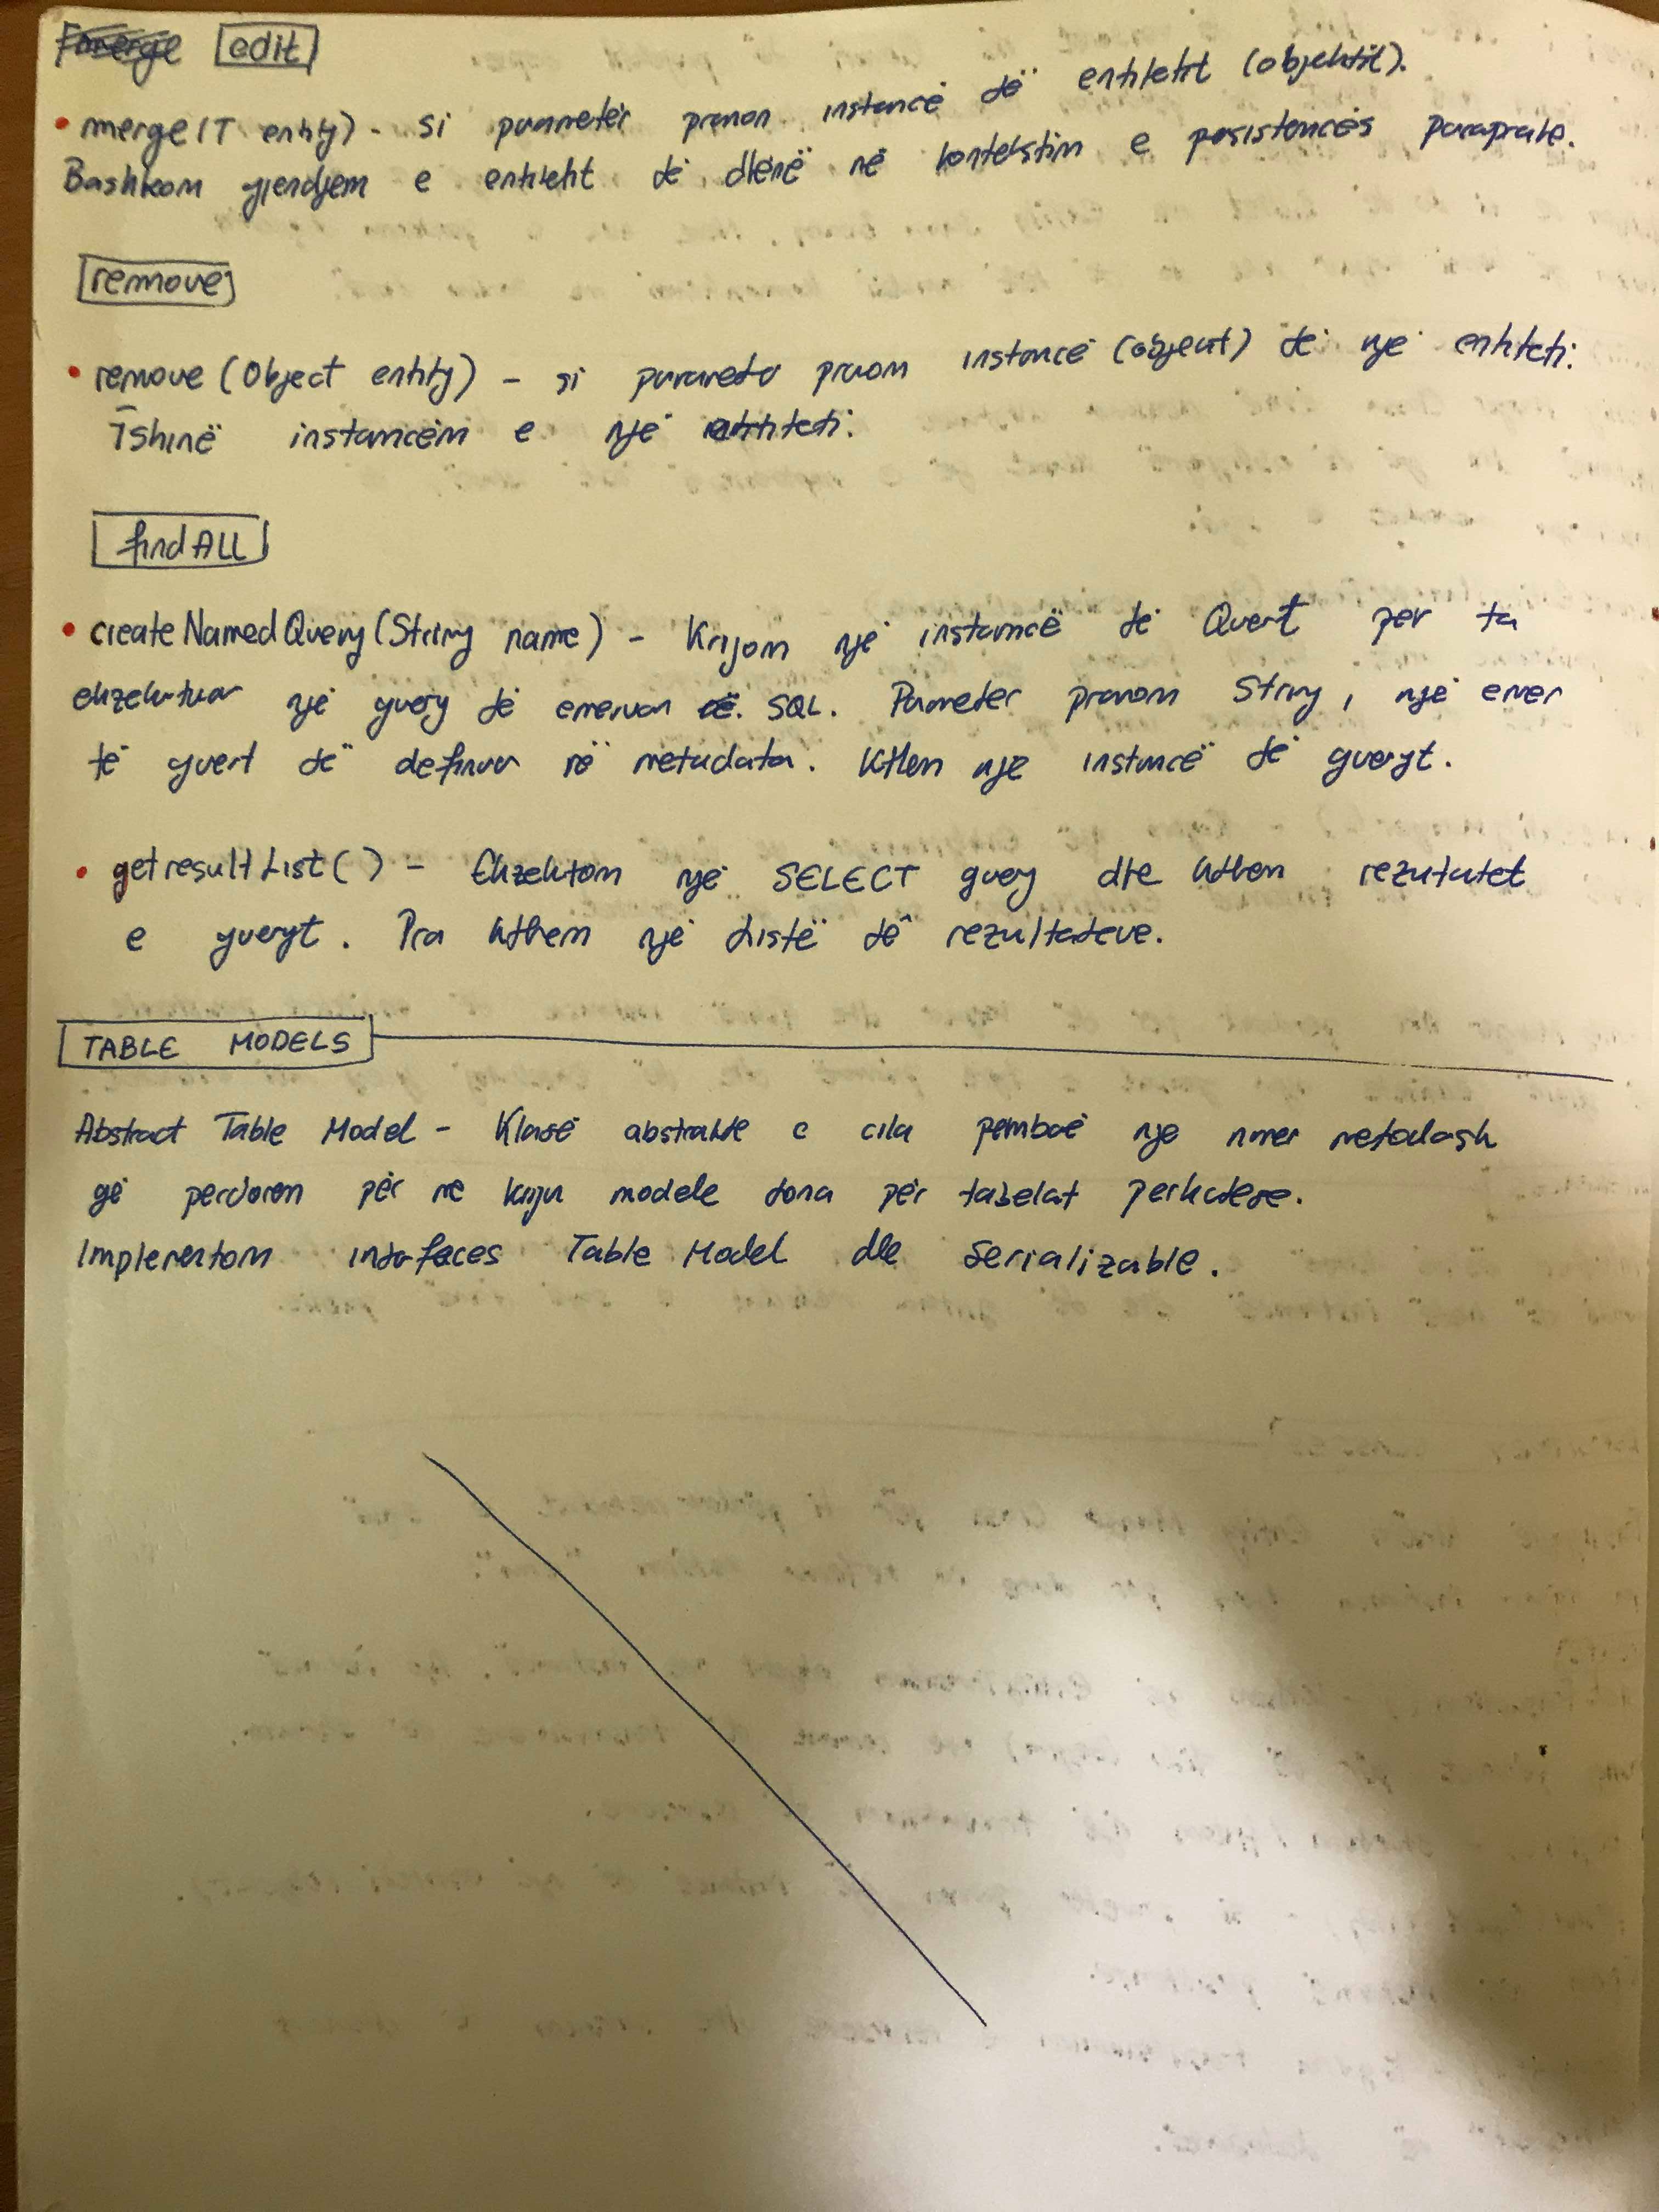 edit
• merge(T entity) - si parametër pranon instancë të entitetit (objektit).
Bashkon gjendjen e entitetit të dhënë në kontekstin e persistencës paraprake.
remove
• remove (Object entity) - si parametër pranon instancë (object) të një entiteti.
Fshinë instancën e një entiteti.
findALL
• createNamedQuery(String name) - Krijon një instancë të Quert për ta
ekzekutuar një query të emëruar SQL. Parameter pranon String, një emer
të quert të definuar në metadata. Kthen një instancë të queryt.
• getresultList() - Ekzekuton një SELECT query dhe kthen rezultatet
e queryt. Pra kthen një Listë të rezultateve.
TABLE MODELS
Abstract Table Model - Klasë abstrakte e cila përmban një numer metodash
që perdoren për me kriju modele tona për tabelat perkatese.
Implementon interfaces Table Model dhe Serializable.